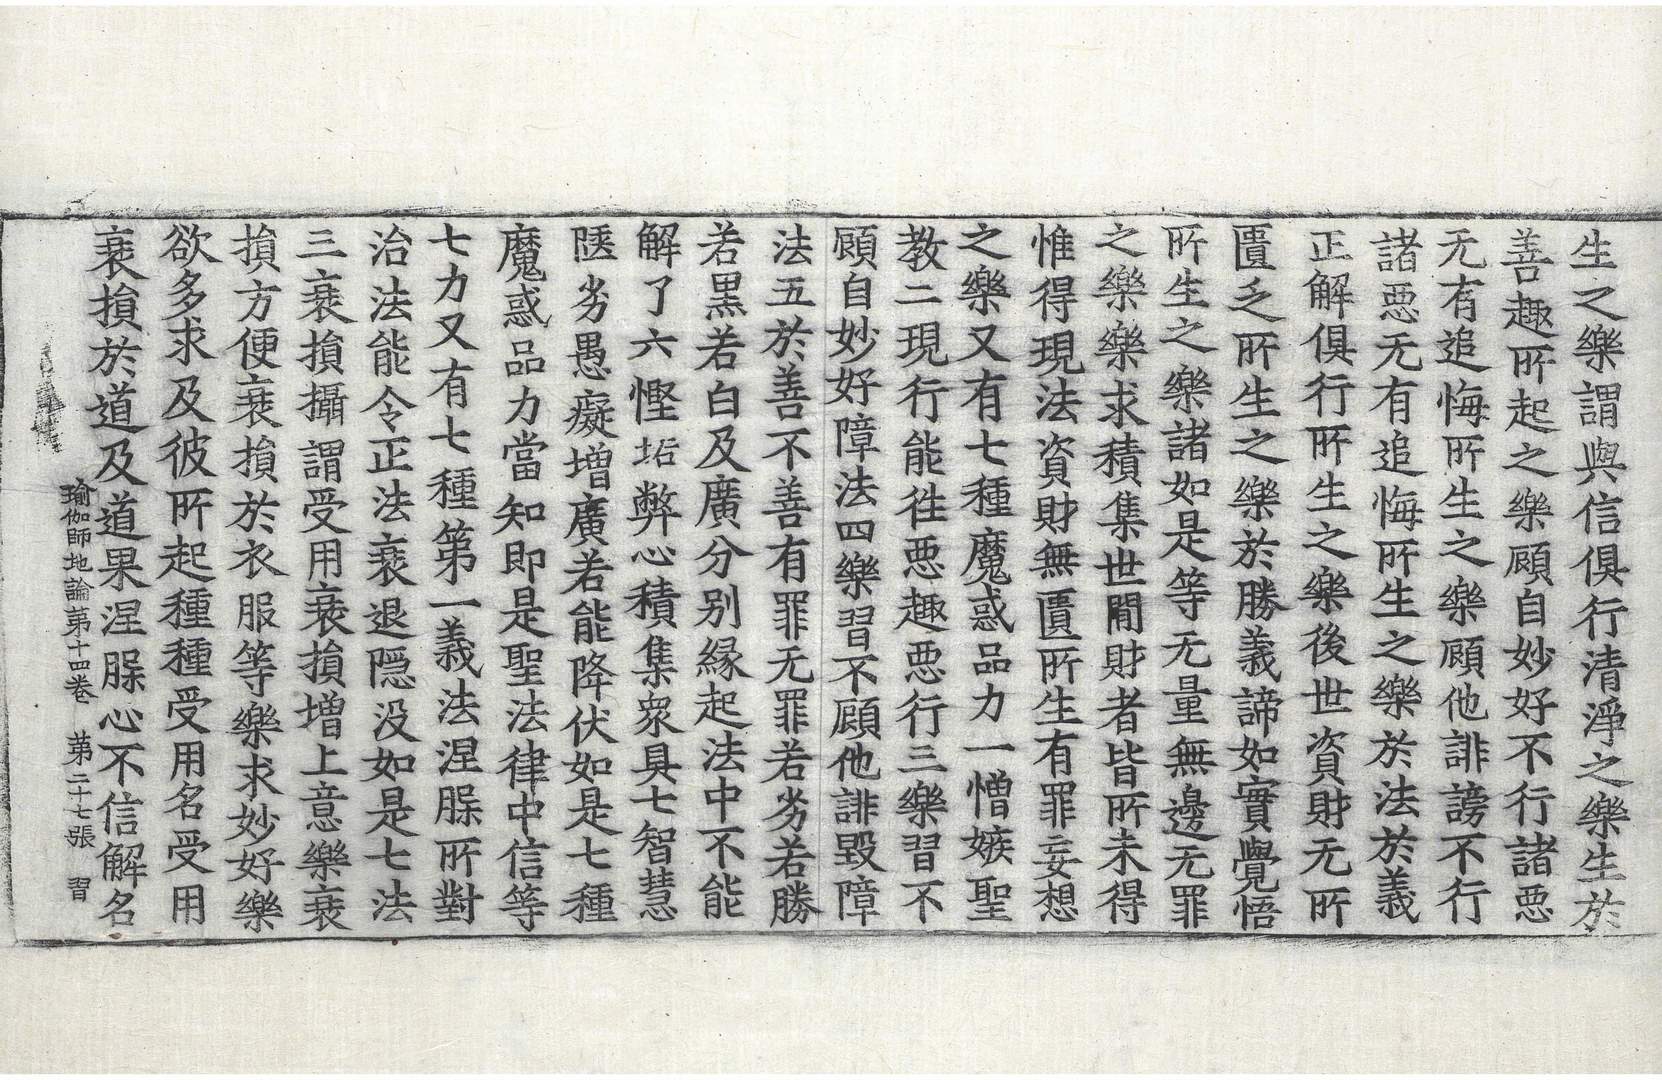 生之樂謂與信俱行清淨之樂生於
善趣所起之樂顧自妙好不行諸惡
无有追悔所生之樂顧他誹謗不行
諸惡无有追悔所生之樂於法於義
正解俱行所生之樂後世資財无所
匱乏所生之樂於勝義諦如實覺悟
所生之樂諸如是等无量無邊无罪
之樂樂求積集世間財者皆所未得
惟得現法資財無匱所生有罪妄想
之樂又有七種魔惑品力一憎嫉聖
教二現行能往惡趣惡行三樂習不
顧自妙好障法四樂習不顧他誹毀障
法五於善不善有罪无罪若劣若勝
若黒若白及廣分別緣起法中不能
解了六慳垢弊心積集衆具七智慧
陿劣愚癡增廣若能降伏如是七種
魔惑品力當知即是聖法律中信等
七力又有七種第一義法涅槃所對
治法能令正法衰退隱没如是七法
三衰損攝謂受用衰損增上意樂衰
損方便衰損於衣服等樂求妙好樂
欲多求及彼所起種種受用名受用
衰損於道及道果涅槃心不信解名
瑜伽師地論第十四卷 第二十七張 習